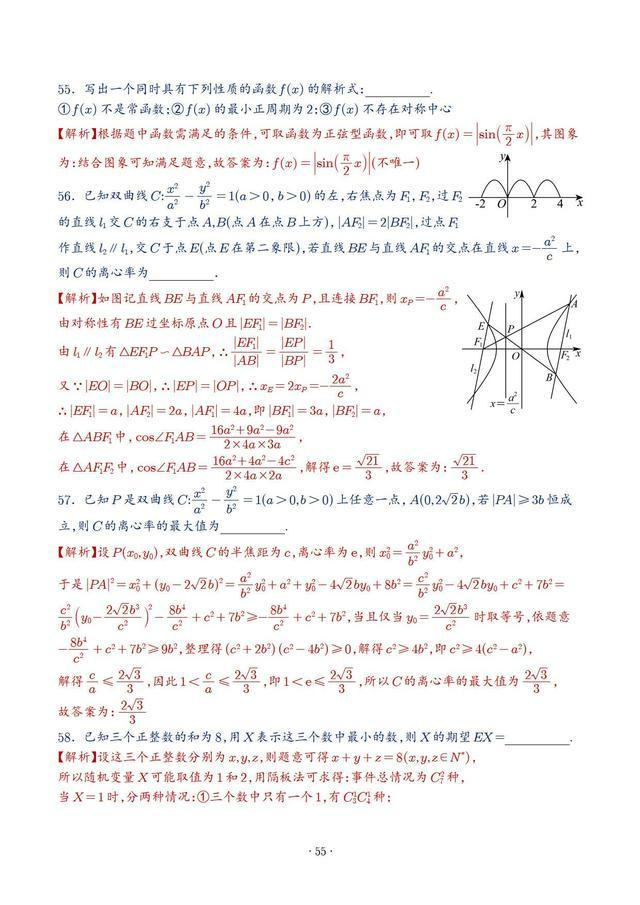 55. 写出一个同时具有下列性质的函数 f(x) 的解析式:__________.
①f(x) 不是常函数;②f(x) 的最小正周期为 2;③f(x) 不存在对称中心
【解析】根据题中函数需满足的条件,可取函数为正弦型函数,即可取 f(x)=|sin(π/2 x)|,其图象
为:结合图象可知满足题意,故答案为:f(x)=|sin(π/2 x)|(不唯一)
y
-2 O 2 4 x
56. 已知双曲线 C:x²/a² − y²/b² = 1(a>0, b>0) 的左,右焦点为 F₁, F₂,过 F₂
的直线 l₁ 交 C 的右支于点 A,B(点 A 在点 B 上方), |AF₂|=2|BF₂|,过点 F₁
作直线 l₂∥l₁,交 C 于点 E(点 E 在第二象限),若直线 BE 与直线 AF₁ 的交点在直线 x=−a²/c 上,
则 C 的离心率为__________.
【解析】如图记直线 BE 与直线 AF₁ 的交点为 P,且连接 BF₁,则 x_P=−a²/c,
由对称性有 BE 过坐标原点 O 且 |EF₁|=|BF₂|.
由 l₁∥l₂ 有 △EF₁P∽△BAP,∴|EF₁|/|AB| = |EP|/|BP| = 1/3,
又∵|EO|=|BO|,∴|EP|=|OP|,∴x_E=2x_P=−2a²/c,
∴|EF₁|=a, |AF₂|=2a, |AF₁|=4a,即 |BF₁|=3a, |BF₂|=a,
在 △ABF₁ 中, cos∠F₁AB=(16a²+9a²−9a²)/(2×4a×3a),
在 △AF₁F₂ 中, cos∠F₁AB=(16a²+4a²−4c²)/(2×4a×2a),解得 e=√21/3,故答案为:√21/3.
y
A
E
P
l₁
F₁
O
F₂ x
l₂
B
x=a²/c
57. 已知 P 是双曲线 C:x²/a² − y²/b² = 1(a>0,b>0) 上任意一点, A(0,2√2b),若 |PA|⩾3b 恒成
立,则 C 的离心率的最大值为__________.
【解析】设 P(x₀,y₀),双曲线 C 的半焦距为 c,离心率为 e,则 x₀²=a²/b² y₀²+a²,
于是 |PA|²=x₀²+(y₀−2√2b)²=a²/b² y₀²+a²+y₀²−4√2by₀+8b²=c²/b² y₀²−4√2by₀+c²+7b²=
c²/b² (y₀−2√2b³/c²)²−8b⁴/c²+c²+7b²⩾−8b⁴/c²+c²+7b²,当且仅当 y₀=2√2b³/c² 时取等号,依题意
−8b⁴/c²+c²+7b²⩾9b²,整理得 (c²+2b²)(c²−4b²)⩾0,解得 c²⩾4b²,即 c²⩾4(c²−a²),
解得 c/a⩽2√3/3,因此 1<c/a⩽2√3/3,即 1<e⩽2√3/3,所以 C 的离心率的最大值为 2√3/3,
故答案为:2√3/3
58. 已知三个正整数的和为 8,用 X 表示这三个数中最小的数,则 X 的期望 EX=__________.
【解析】设这三个正整数分别为 x,y,z,则题意可得 x+y+z=8(x,y,z∈N*),
所以随机变量 X 可能取值为 1 和 2,用隔板法可求得:事件总情况为 C₇² 种,
当 X=1 时,分两种情况:①三个数中只有一个 1,有 C₃¹C₄¹ 种;
·55·